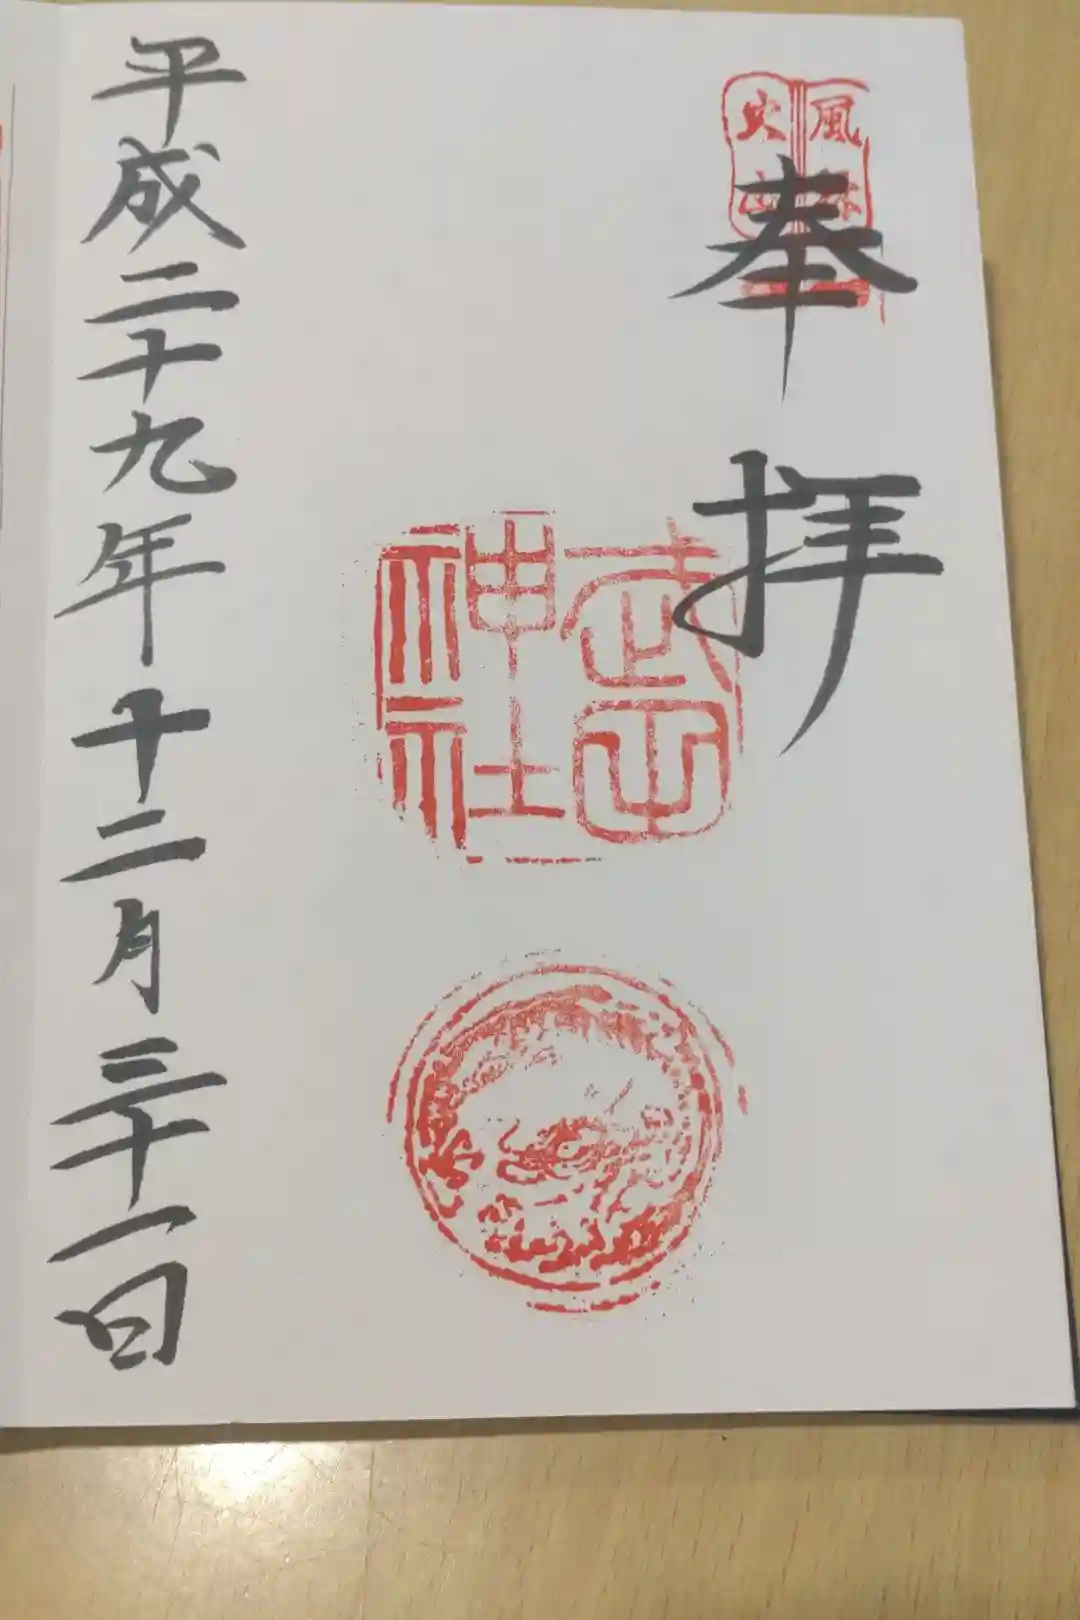 風林
火山
奉拝
武田
神社
平成二十九年十二月三十一日